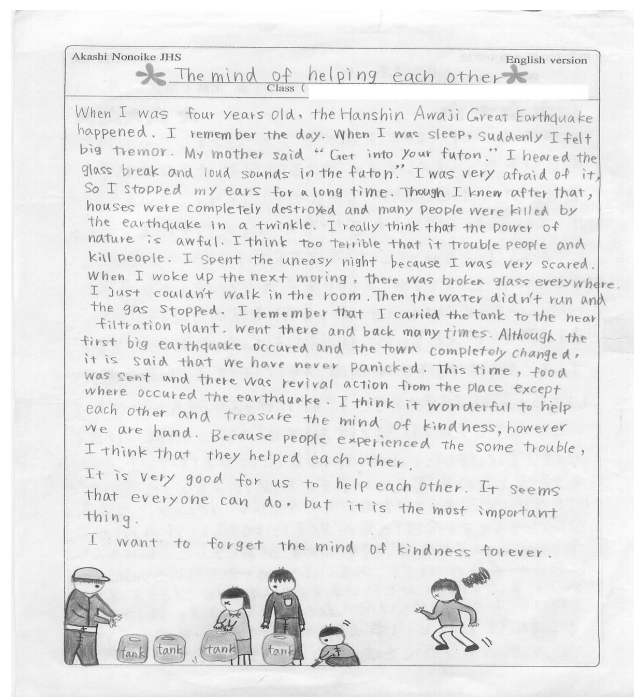 Akashi Nonoike JHS
English version
The mind of helping each other
Class (
When I was four years old, the Hanshin Awaji Great Earthquake
happened. I remember the day. When I was sleep, suddenly I felt
big tremor. My mother said "Get into your futon." I heared the
glass break and loud sounds in the futon." I was very afraid of it,
So I stopped my ears for a long time. Though I knew after that,
houses were completely destroyed and many people were killed by
the earthquake in a twinkle. I really think that the power of
nature is awful. I think too terrible that it trouble people and
kill people. I spent the uneasy night because I was very scared.
When I woke up the next moring, there was broken glass everywhere.
I just couldn't walk in the room. Then the water didn't run and
the gas stopped. I remember that I carried the tank to the near
filtration plant. Went there and back many times. Although the
first big earthquake occured and the town completely changed,
it is said that we have never panicked. This time, food
was sent and there was revival action from the place except
where occured the earthquake. I think it wonderful to help
each other and treasure the mind of kindness, however
we are hand. Because people experienced the some trouble,
I think that they helped each other.
It is very good for us to help each other. It seems
that everyone can do. but it is the most important
thing.
I want to forget the mind of kindness forever.
tank
tank
tank
tank